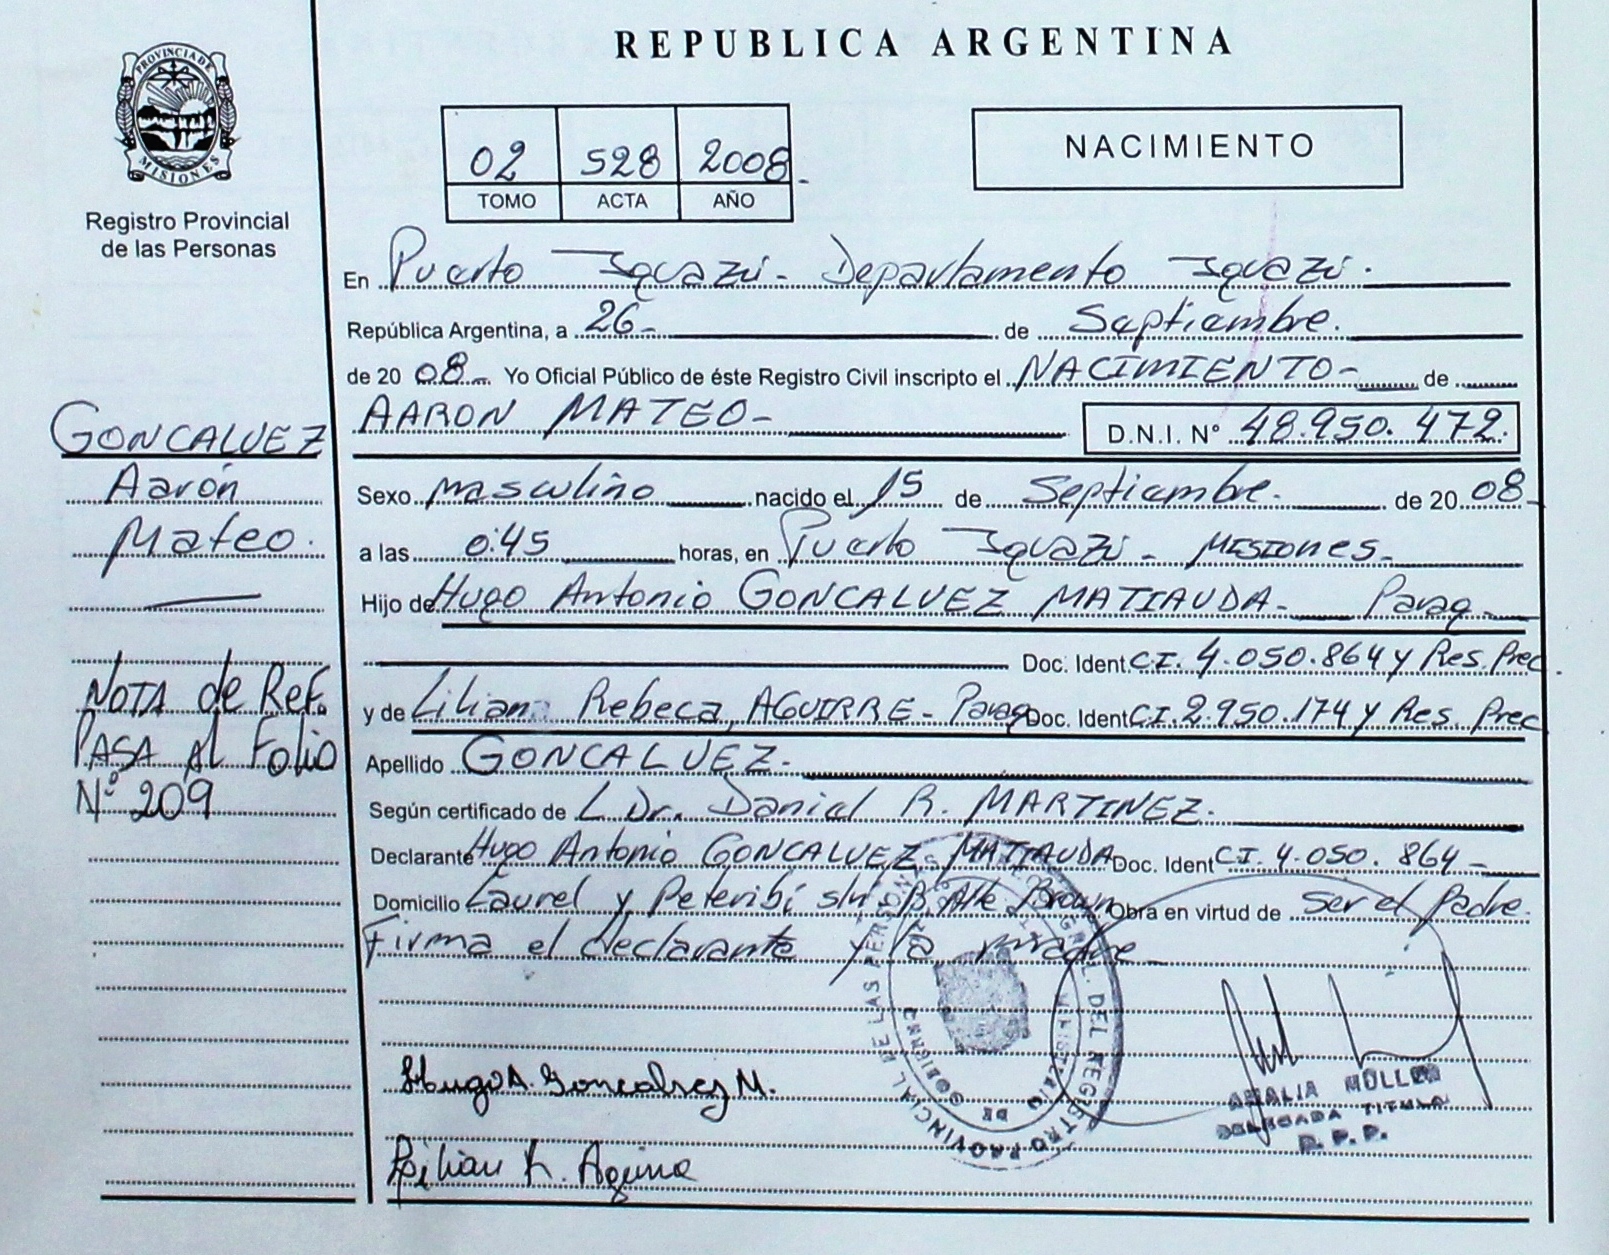 REPUBLICA ARGENTINA
PROVINCIA DE
MISIONES
Registro Provincial
de las Personas
02 528 2008
TOMO ACTA AÑO
NACIMIENTO
En Puerto Iguazú - Departamento Iguazú.
República Argentina, a 26 - de Septiembre.
de 20 08 - Yo Oficial Público de éste Registro Civil inscripto el NACIMIENTO - de
AARON MATEO - D.N.I. N° 48.950.472.
GONCALVEZ
Aarón
Mateo.
Sexo masculino nacido el 15 de Septiembre. de 20 08 -
a las 0:45 horas, en Puerto Iguazú - MISIONES -
Hijo de Hugo Antonio GONCALVEZ MATIAUDA - Parag -
Doc. Ident C.I. 4.050.864 y Res. Prec.
y de Lilian Rebeca AGUIRRE - Parag Doc. Ident C.I. 2.950.174 y Res. Prec
NOTA de Ref.
PASA Al Folio
N° 209
Apellido GONCALVEZ -
Según certificado de L Dr. Daniel R. MARTINEZ.
Declarante Hugo Antonio GONCALVEZ MATIAUDA Doc. Ident C.I. 4.050.864 -
Domicilio Laurel y Peteribí s/n B. Alte Brown Obra en virtud de ser el Padre.
Firma el declarante y la madre -
Hugo A. Goncalvez M.
Lilian R. Aguirre
REGISTRO PROVINCIAL DE LAS PERSONAS
MINISTERIO DE GOBIERNO
AMALIA MÜLLER
DELEGADA TITULAR
R.P.P.